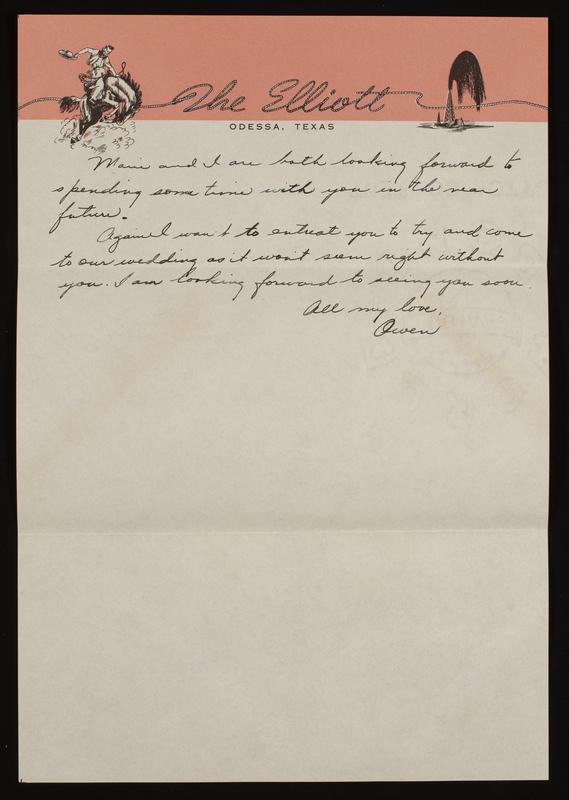 The Elliott
ODESSA, TEXAS
Marie and I are both looking forward to
spending some time with you in the near
future.
Again I want to entreat you to try and come
to our wedding as it won't seem right without
you. I am looking forward to seeing you soon.
All my love,
Owen